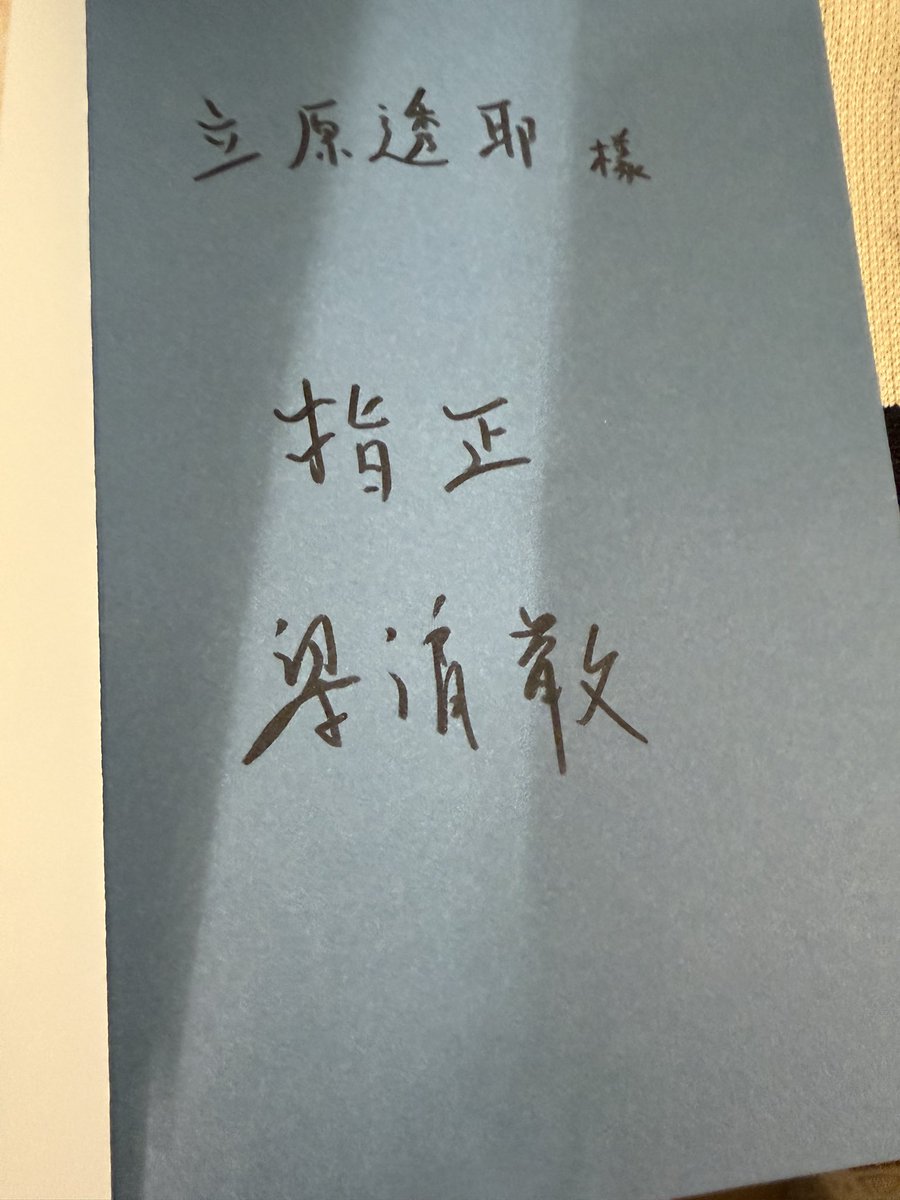 立原透耶様
指正
梁清散